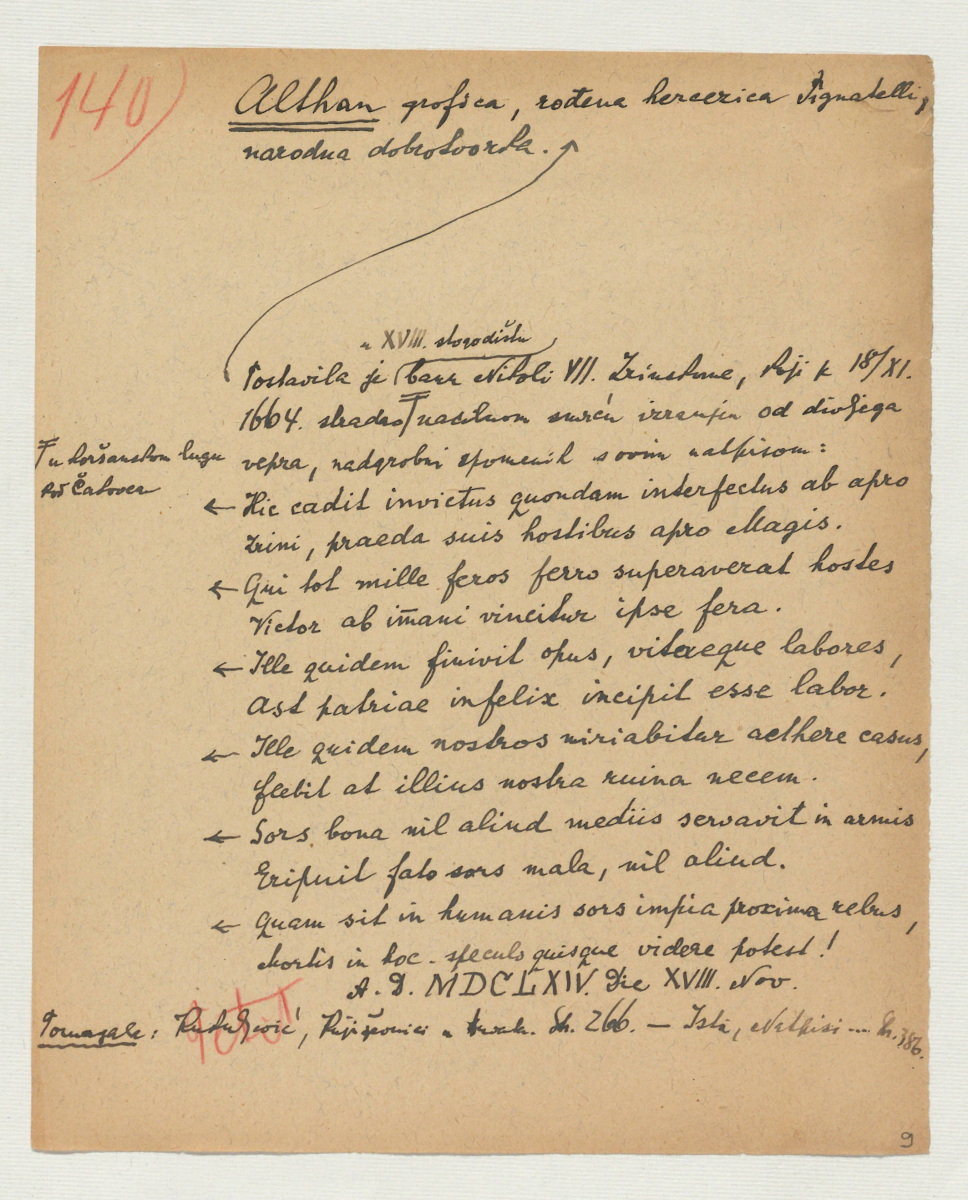 140)
Althan grofica, rođena hercezica Pignatelli,
narodna dobrotvorka.
u XVIII. stogodištu
Postavila je banu Nikoli VII. Zrinskome, koji je 18/XI.
1664. stradao nasilnom smrću izranjen od divljega
u koršanskom lugu
kod Čakovca
vepra, nadgrobni spomenik s ovim natpisom:
← Hic cadit invictus quondam interfectus ab apro
Zrini, praeda suis hostibus apro Magis.
← Qui tot mille feros ferro superaverat hostes
Victor ab im̄ani vincitur ipse fera.
← Ille quidem finivit opus, vitaeque labores,
Ast patriae infelix incipit esse labor.
← Ille quidem nostros miriabitur aethere casus,
flebit at illius nostra ruina necem.
← Sors bona nil aliud mediis servavit in armis
Eripuit fato sors mala, nil aliud.
← Quam sit in humanis sors impia proxima rebus,
Mortis in hoc speculo quisque videre potest!
A. D. MDCLXIV. Die XVIII. Nov.
Pomagale: Kukuljević, Književnici u Hrvat. Str. 266. — Isti, Natpisi ... Str. 386.
9